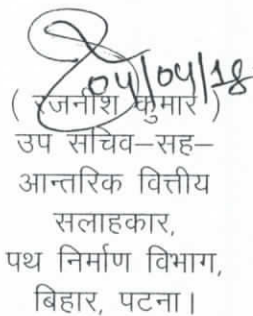 04/04/18
( रजनीश कुमार )
उप सचिव–सह–
आन्तरिक वित्तीय
सलाहकार,
पथ निर्माण विभाग,
बिहार, पटना।